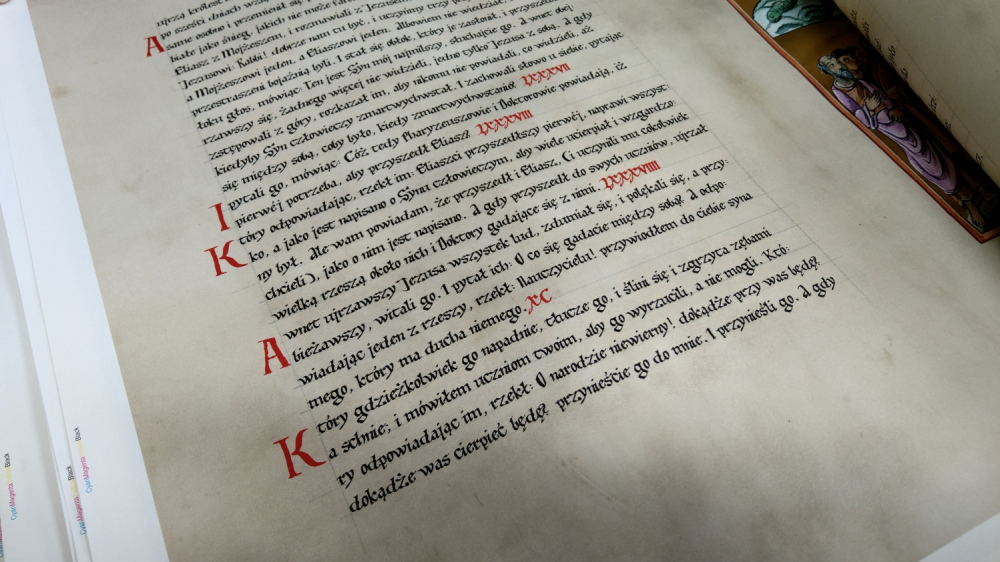 ujrzą królest
po sześci dniach
A same osobno i przemienił się
białe jako śnieg, jakich nie może
Eliasz z Mojżeszem, i rozmawiali z Jezusem
Jezusowi: Rabbi! dobrze nam tu być, i uczyńmy trzy
a Mojżeszowi jeden, a Eliaszowi jeden. Albowiem nie wiedział,
przestraszeni bojaźnią byli. I stał się obłok, który je zasłonił, i przyszedł
łoku głos, mówiąc: Ten jest Syn mój najmilszy, słuchajcie go. A wnet obej:
rzawszy się, żadnego więcej nie widzieli, jedno tylko Jezusa z sobą. A gdy
zstępowali z góry, rozkazał im, aby nikomu nie powiadali, co widzieli, aż
kiedyby Syn człowieczy zmartwychwstał. I zachowali słowo u siebie, pytając
się między sobą, coby było, kiedy zmartwychwstanie? LXXXVII
I pytali go, mówiąc: Cóż tedy Pharyzeuszowie i Doktorowie powiadają, iż
pierwéj potrzeba, aby przyszedł Eliasz? LXXXVIII
Który odpowiadając, rzekł im: Eliaszci przyszedłszy pierwéj, naprawi wszyst:
ko, a jako jest napisano o Synu człowieczym, aby wiele ucierpiał i wzgardzo:
ny był. Ale wam powiadam, że przyszedł i Eliasz, (i uczynili mu cokolwiek
chcieli), jako o nim jest napisano. A gdy przyszedł do swych uczniów, ujrzał
wielką rzeszą około nich i Doktory gadające się z nimi. LXXXVIIII
A wnet ujrzawszy Jezusa wszystek lud, zdumiał się, i polękali się, a przy:
bieżawszy, witali go. I pytał ich: O co się gadacie między sobą? A odpo:
wiadając jeden z rzeszy, rzekł: Nauczycielu! przywiodłem do ciebie syna
mego, który ma ducha niemego. XC
Który gdzieżkolwiek go napadnie, tłucze go, i ślini się i zgrzyta zębami
a schnie; i mówiłem uczniom twoim, aby go wyrzucili, a nie mogli. Któ:
ry odpowiadając im, rzekł: O narodzie niewierny! dokądże przy was będę?
dokądże was cierpieć będę? przynieście go do mnie. I przynieśli go. A gdy
Cyan Magenta Yellow Black
CyanMagenta Yellow Black
CyanMagenta Yellow Black